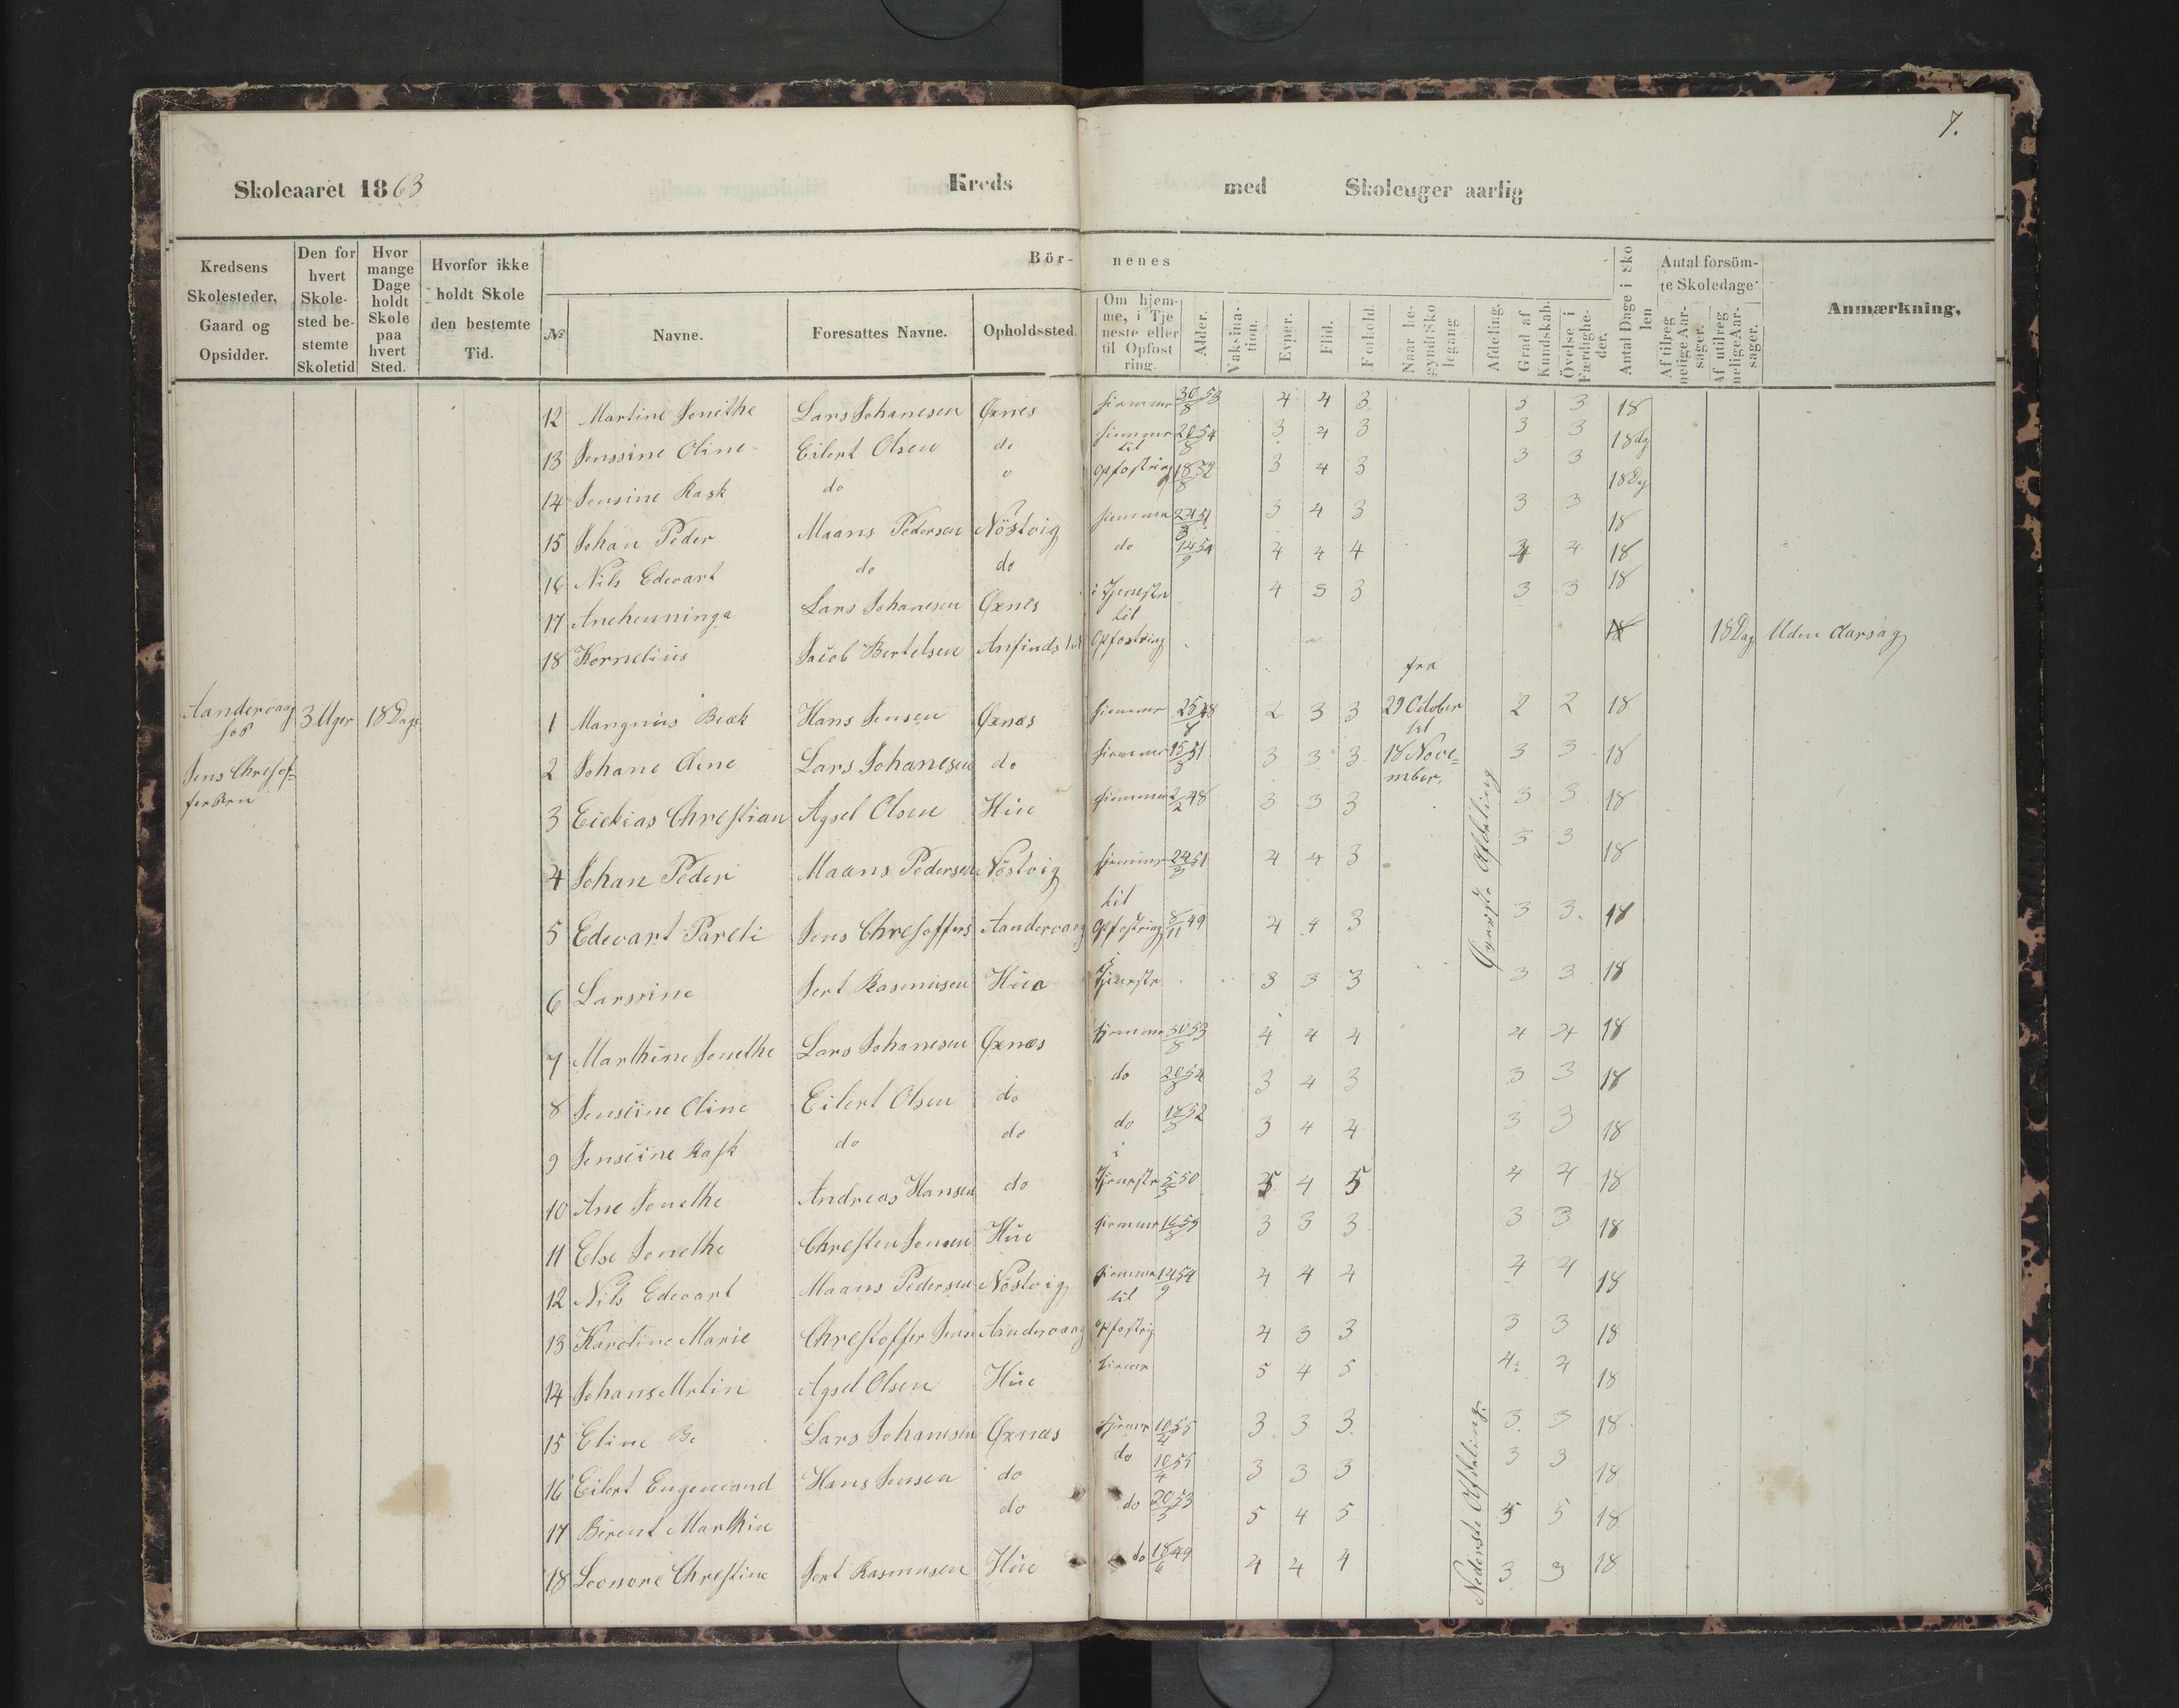 7.
Skoleaaret 1863 Kreds med Skoleuger aarlig
Kredsens Skolesteder, Gaard og Opsidder.
Den for hvert Skolested bestemte Skoletid
Hvor mange Dage holdt Skole paa hvert Sted.
Hvorfor ikke holdt Skole den bestemte Tid.
Bör- nenes
No
Navne.
Foresattes Navne.
Opholdssted.
Om hjemme, i Tjeneste eller til Opfostring.
Alder.
Vaksination.
Evner.
Flid.
Forhold.
Naar begyndt Skolegang
Afdeling.
Grad af Kundskab.
Övelse i Færdigheder.
Antal Dage i Skolen
Antal forsömte Skoledage
Af tilregnelige Aarsager.
Af utilregnelige Aarsager.
Anmærkning.
12 Martine Jonethe Lars Johanesen Øxnes hiemme 30/8 53 4 4 3 3 3 18
13 Jenssine Oline Eilert Olsen do hiemme 20/8 54 3 4 3 3 3 18dg
14 Jensine Rask do o til Opfostring 18/8 52 3 4 3 3 3 18Dg
15 Johan Peder Maans Pedersen Nöstvig hiemme 24/3 51 3 4 3 3 3 18
16 Nils Edevart do do do 14/9 54 4 4 4 4 4 18
17 Anehenninga Lars Johanesen Øxnes i Tjeneste 4 3 3 3 3 18
18 Kornelius Jacob Bertelsen til Opfostring 18 18Dag Uden Aarsag
Aandervaag hos Jens Chrestoffersen 3 Uger 18 Dage
fra 29 October til 18 November.
Øverste Afdeling
1 Mangnus Beck Hans Jensen Øxnæs hiemme 25/8 48 2 3 3 2 2 18
2 Johane Oline Lars Johanesen do hiemme 15/8 51 3 3 3 3 3 18
3 Eiekias Chrestian Agsel Olsen Hue hiemme 2/2 48 3 3 3 3 3 18
4 Johan Peder Maans Pedersen Nöstvig hiemme 24/3 51 4 4 3 3 3 18
5 Edevart Pareli Jens Chresoffers Aandervaag til Opfostring 8/11 49 4 4 3 3 3 18
6 Larsine Jert Rasmusen Hue i Tjeneste 3 3 3 3 3 18
7 Marthine Jonethe Lars Johanesen Øxnæs hiemme 30/8 53 4 4 4 4 4 18
8 Jenseine Oline Eilert Olsen do do 20/8 54 3 4 3 3 3 18
9 Jenseine Rask do do do 18/8 52 3 4 4 3 3 18
10 Ane Jonethe Andreas Hansen do i Tjeneste 5/5 50 5 4 5 4 4 18
11 Else Jonethe Chresten Jensen Hue hiemme 3 3 3 3 3 18
12 Nils Edevart Maans Pedersen Nöstvig hiemme 14/9 54 4 4 4 4 4 18
13 Karoline Marie Chrestoffer Jens Aandervaag til opfostrig 4 3 3 3 3 18
14 Johans Mrtin Agsel Olsen Hue hiemme 5 4 5 4 4 18
Nederste Afdeling.
15 Eline Be Lars Johanesen Øxnæs hiemme 10/4 55 3 3 3 3 3 18
16 Eilert Engenvand Hans Jensen do do 10/4 55 3 3 3 3 3 18
17 Berent Marthin do do 20/5 53 5 4 5 5 5 18
18 Leonore Chrestine Jert Rasmusen Hue do 18/6 49 4 4 4 3 3 18